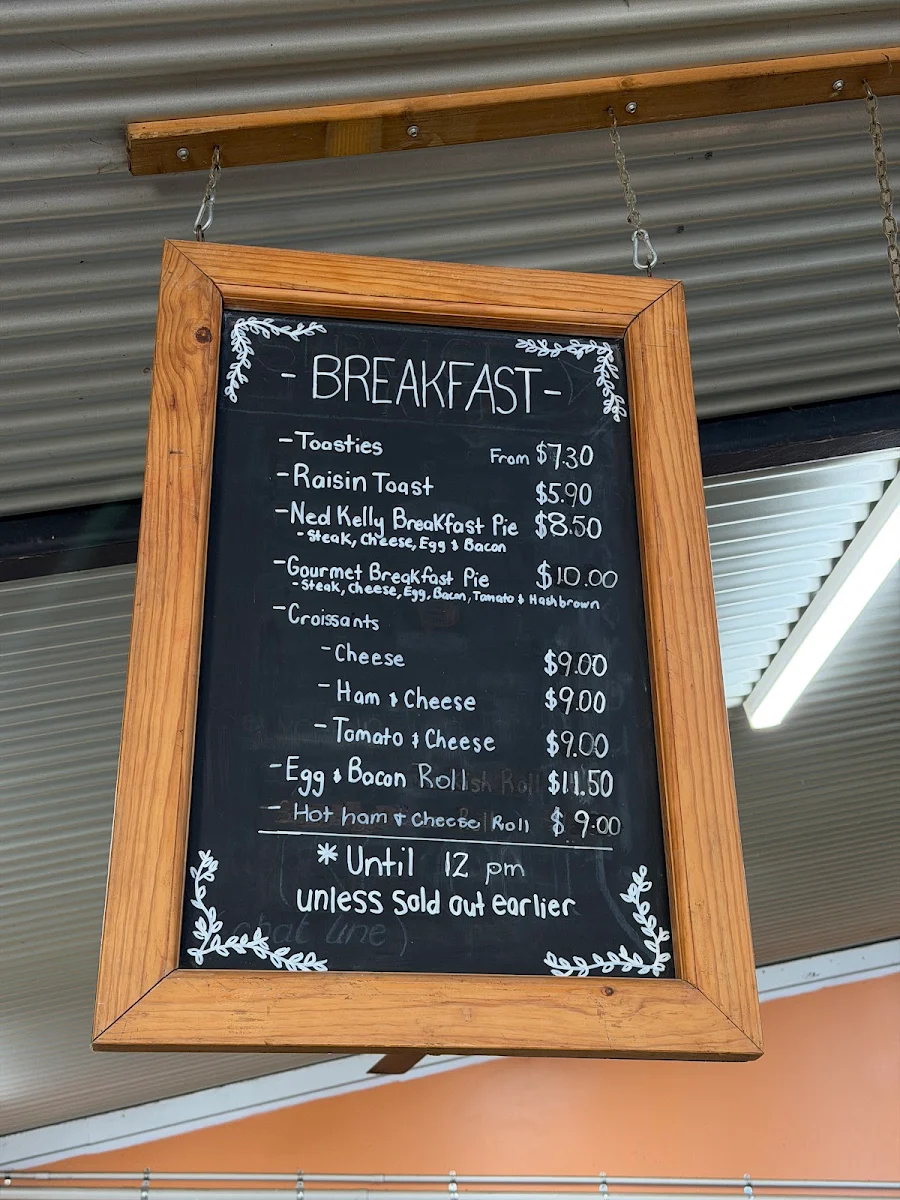 - BREAKFAST -
- Toasties From $7.30
- Raisin Toast $5.90
- Ned Kelly Breakfast Pie $8.50
- Steak, Cheese, Egg & Bacon
- Gourmet Breakfast Pie $10.00
- Steak, Cheese, Egg, Bacon, Tomato & Hashbrown
- Croissants
- Cheese $9.00
- Ham & Cheese $9.00
- Tomato & Cheese $9.00
- Egg & Bacon Roll $11.50
- Hot ham & Cheese Roll $9.00
* Until 12 pm
unless sold out earlier